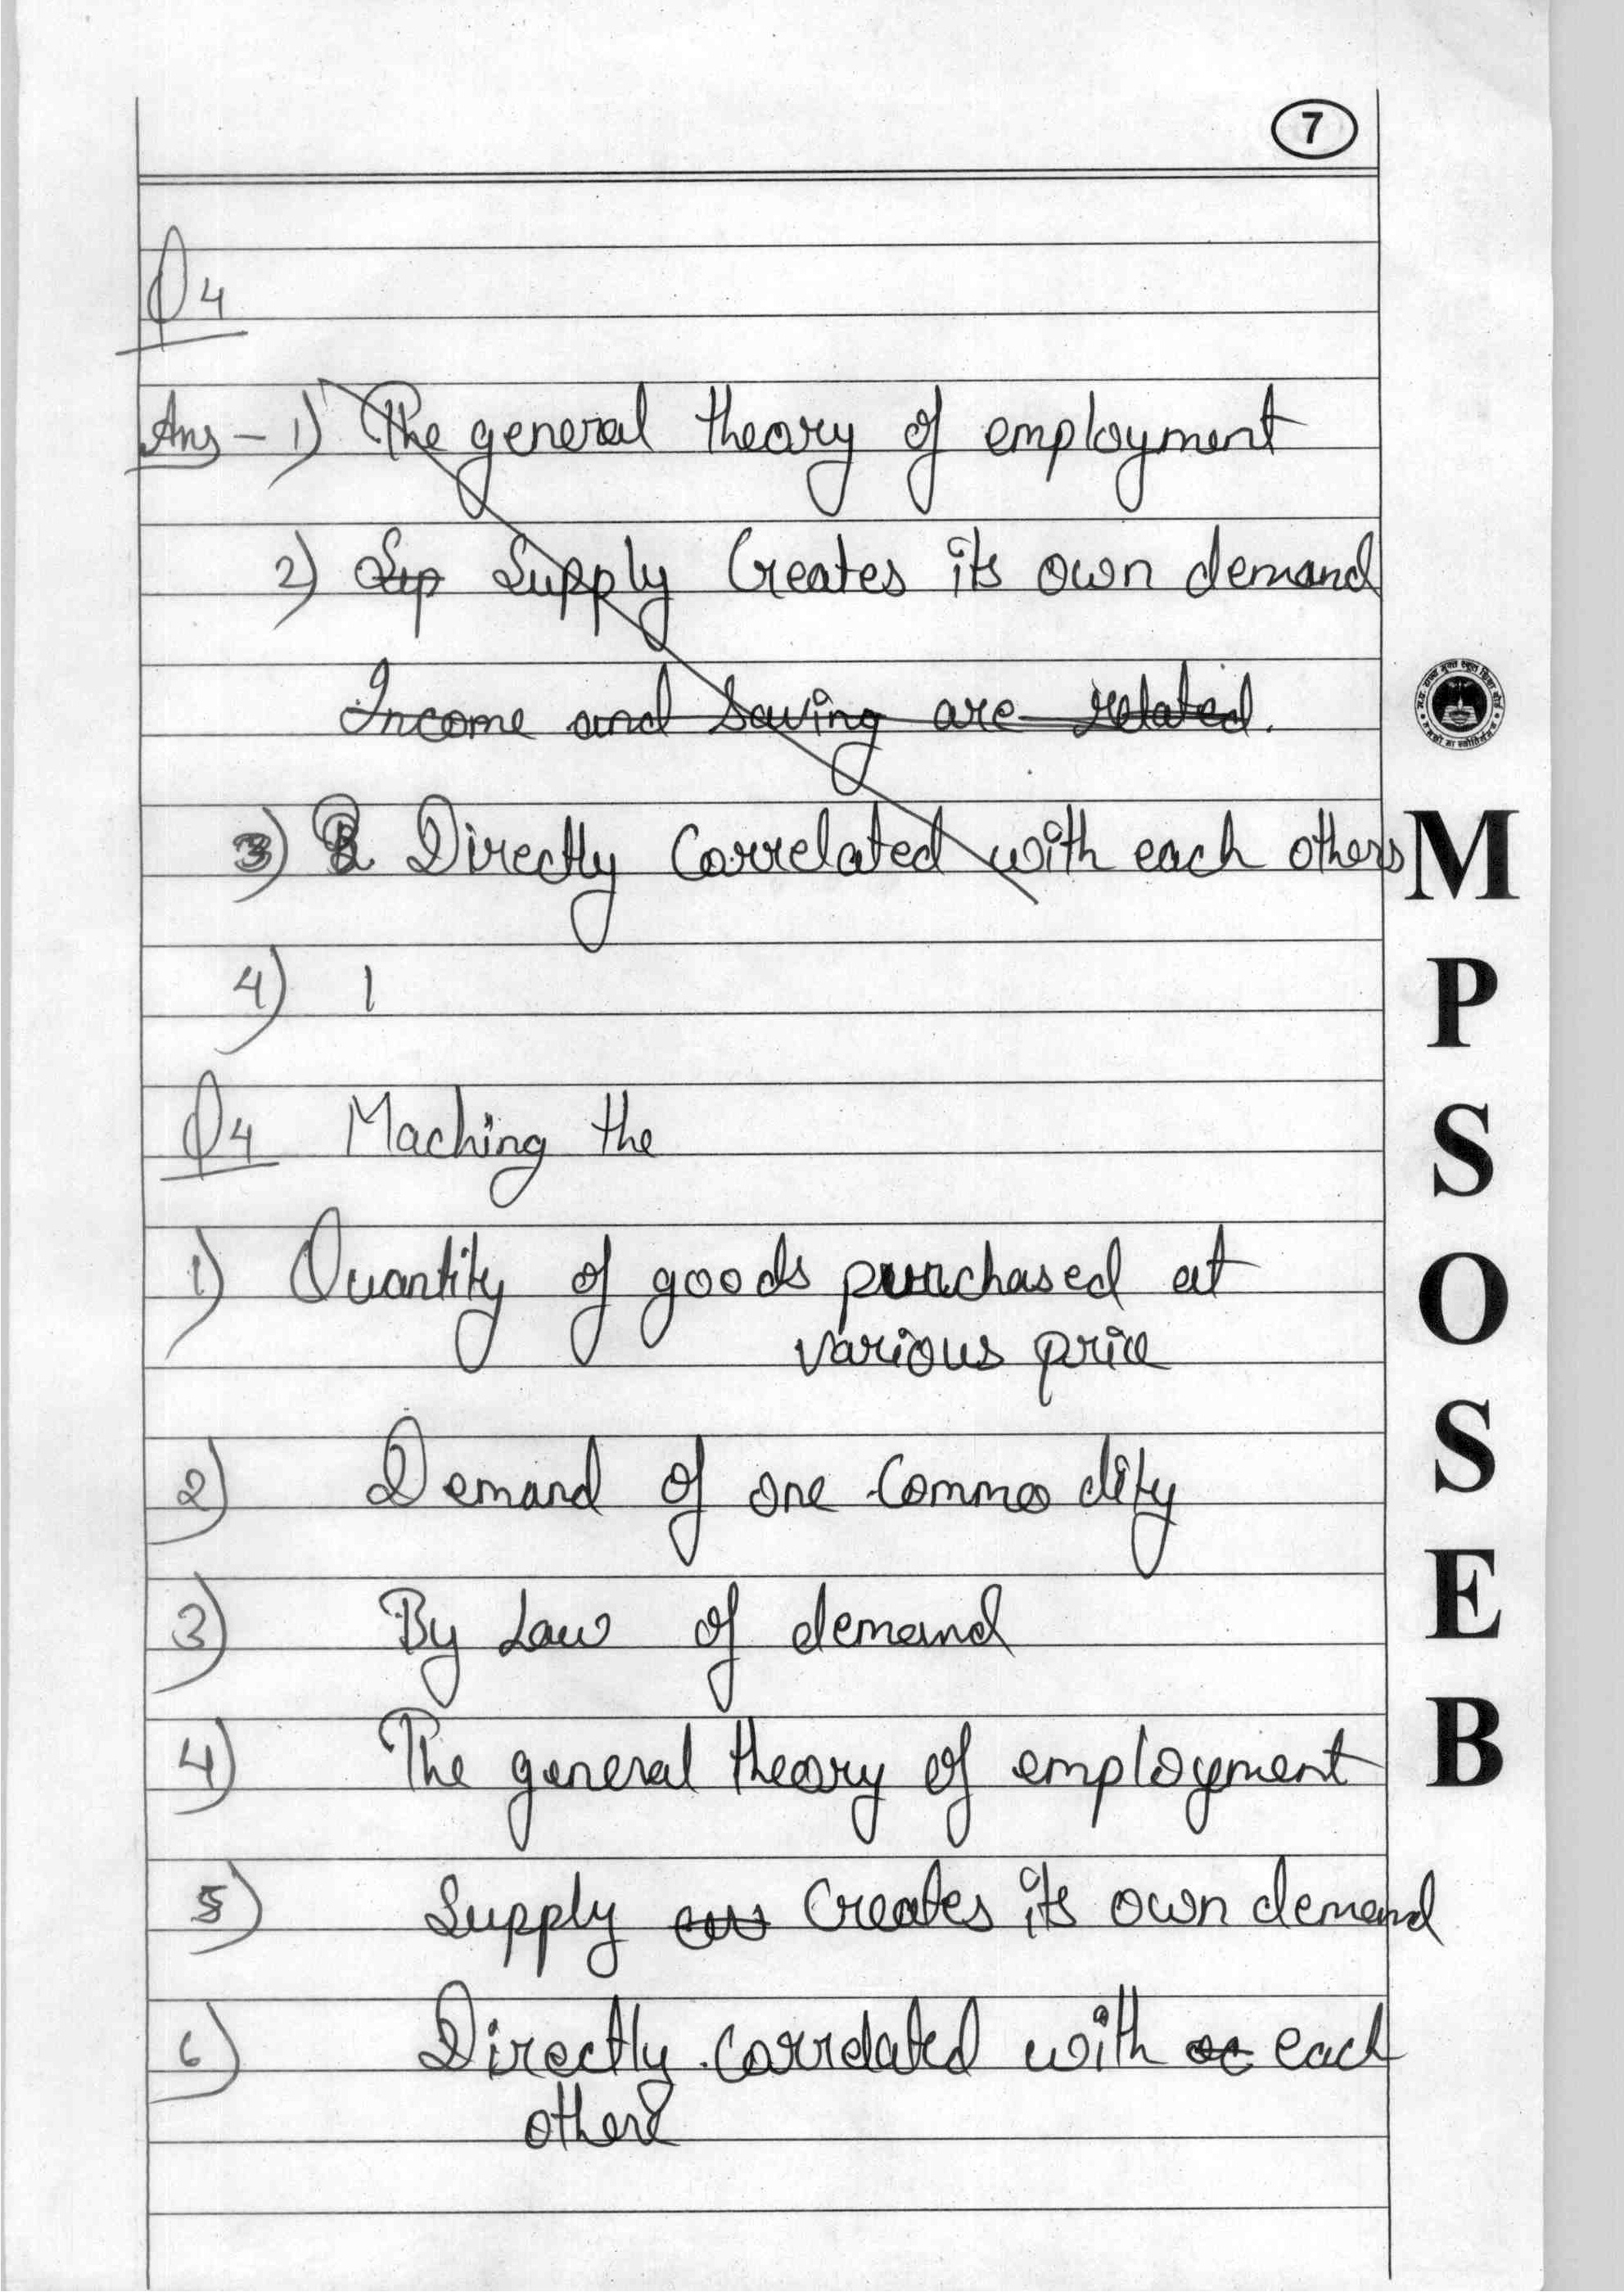 7
Q4
Ans - 1) The general theory of employment
2) Sup Supply Creates its own demand
Income and Saving are related.
3) Directly Correlated with each others
4) 1
Q4 Maching the
1) Quantity of goods purchased at
various price
2) Demand of one Commodity
3) By Law of demand
4) The general theory of employment
5) Supply Creates its own demand
6) Directly Correlated with each
other
M
P
S
O
S
E
B